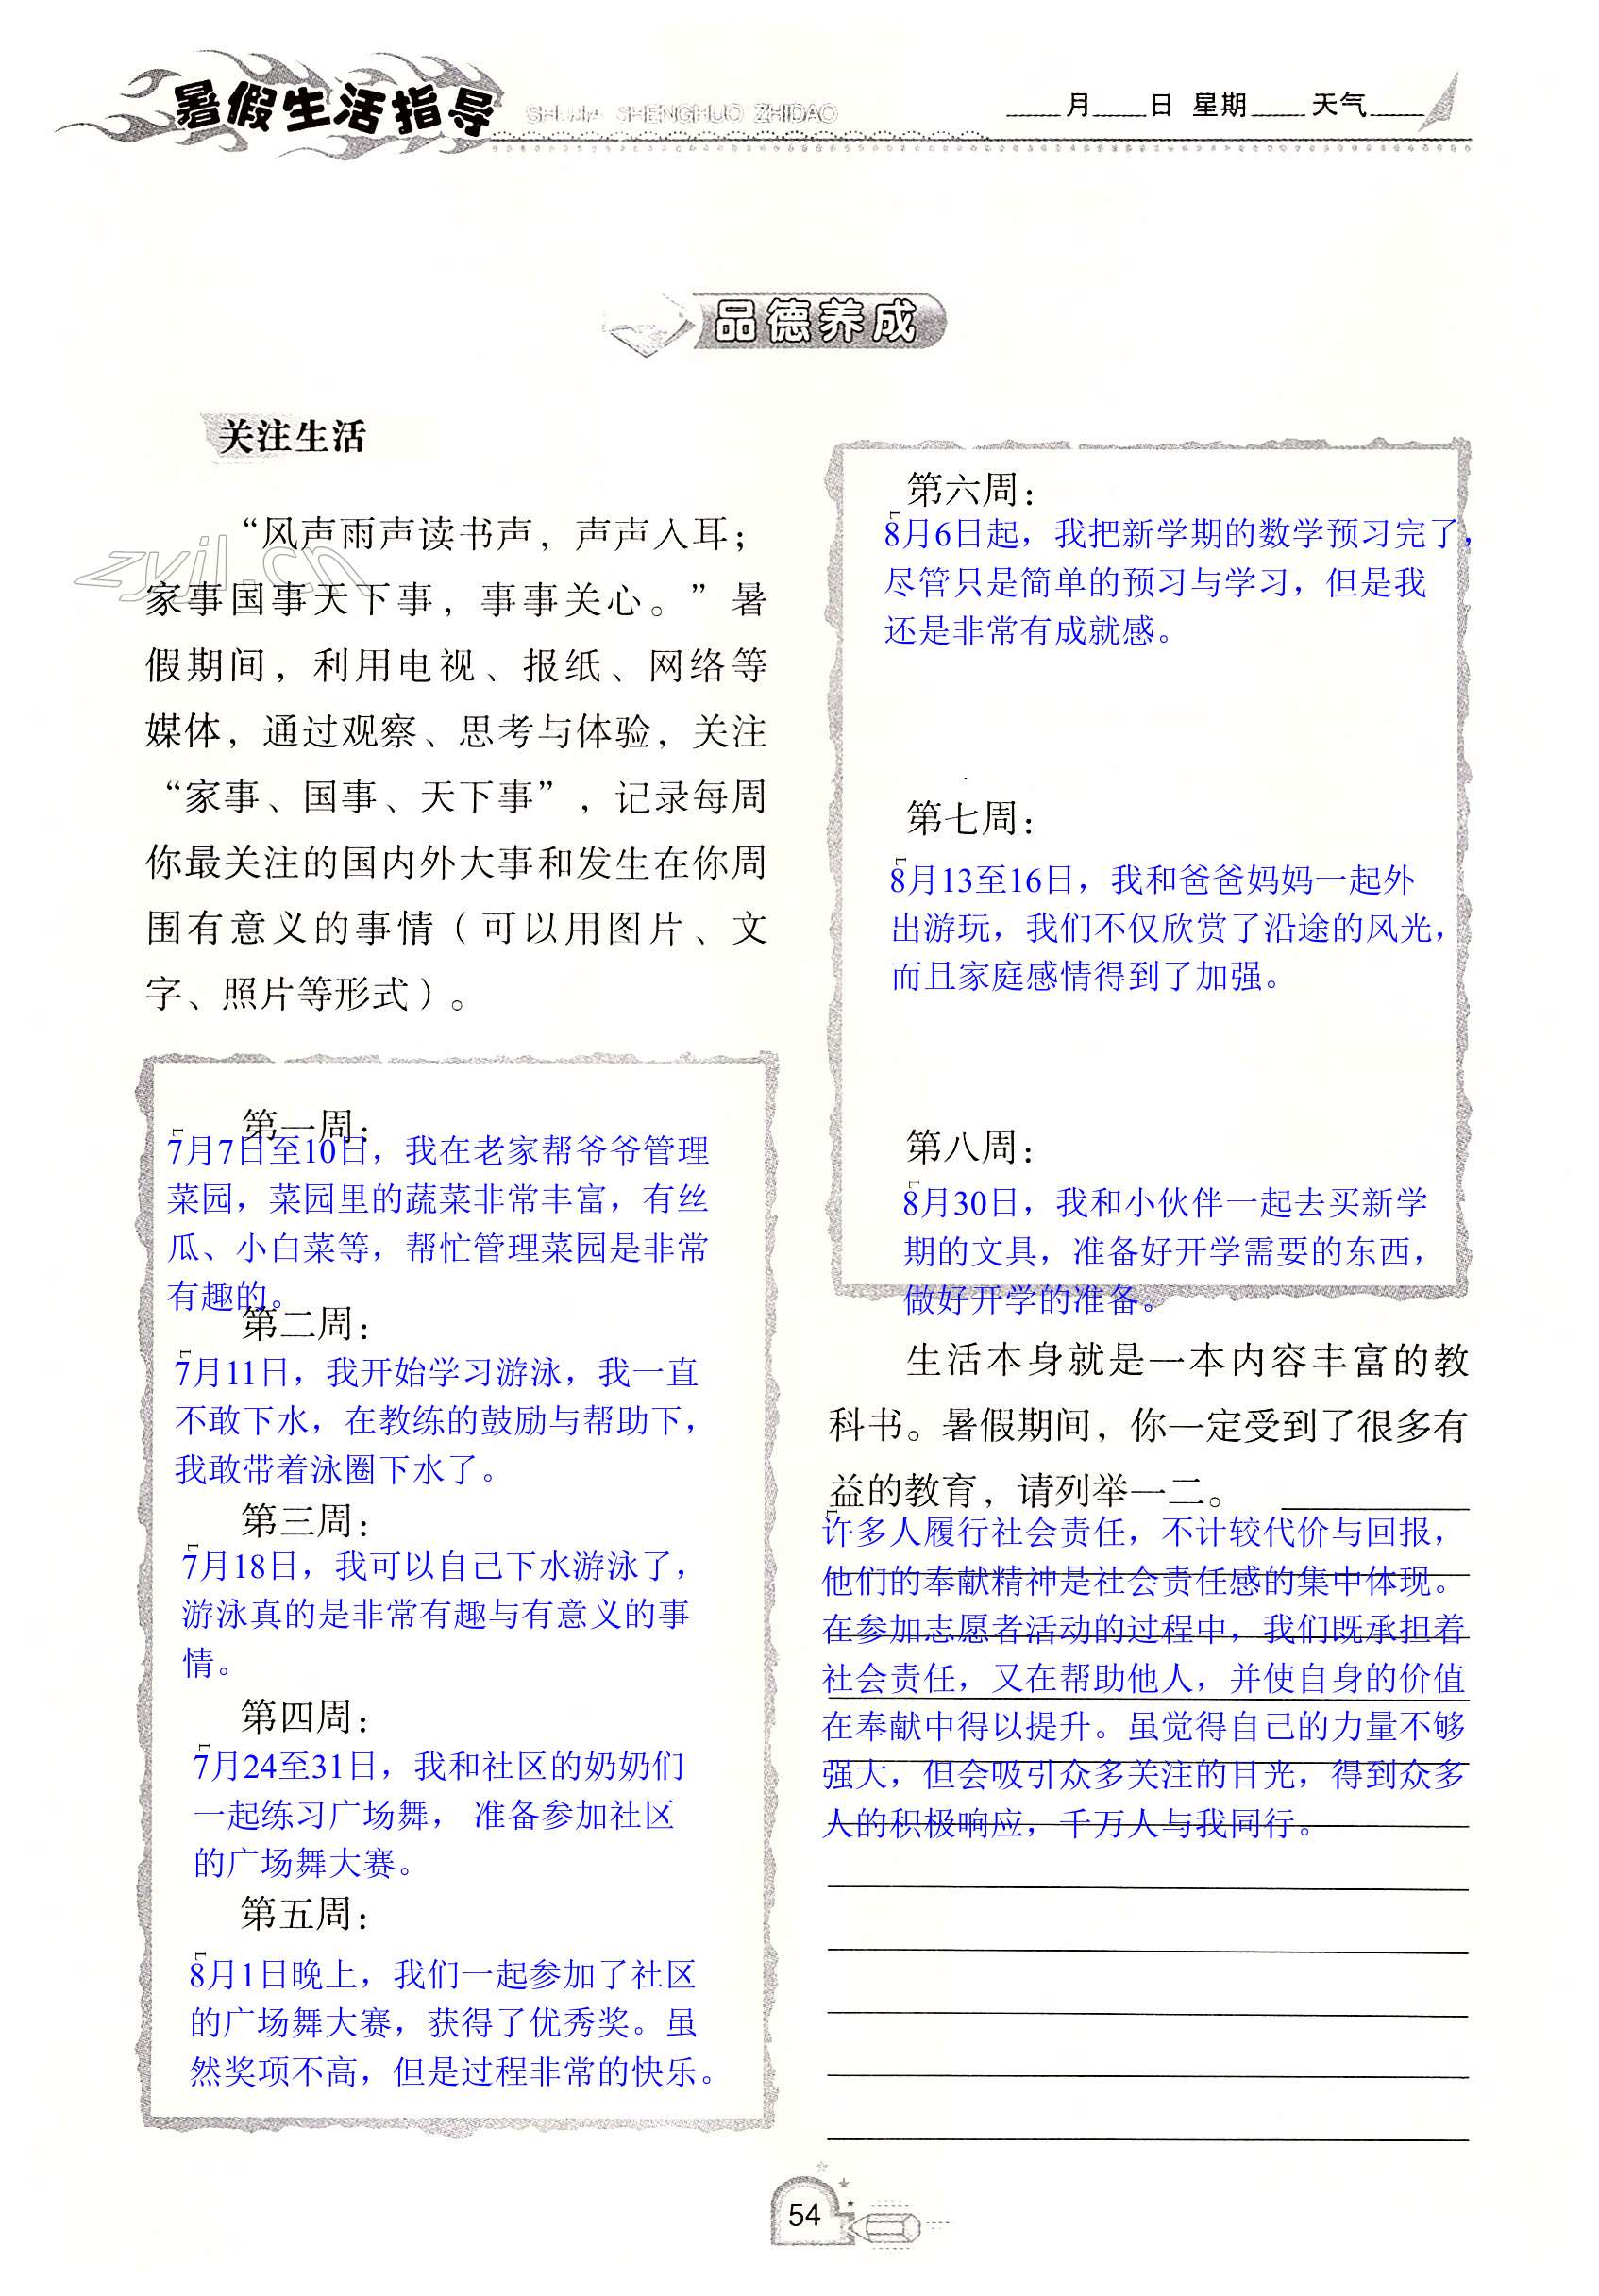 暑假生活指导 SHUJIA SHENGHUO ZHIDAO 月 日 星期 天气
品德养成
关注生活
“风声雨声读书声，声声入耳；
家事国事天下事，事事关心。”暑
假期间，利用电视、报纸、网络等
媒体，通过观察、思考与体验，关注
“家事、国事、天下事”，记录每周
你最关注的国内外大事和发生在你周
围有意义的事情（可以用图片、文
字、照片等形式）。
zyjl.cn
第一周：
7月7日至10日，我在老家帮爷爷管理
菜园，菜园里的蔬菜非常丰富，有丝
瓜、小白菜等，帮忙管理菜园是非常
有趣的。
第二周：
7月11日，我开始学习游泳，我一直
不敢下水，在教练的鼓励与帮助下，
我敢带着泳圈下水了。
第三周：
7月18日，我可以自己下水游泳了，
游泳真的是非常有趣与有意义的事
情。
第四周：
7月24至31日，我和社区的奶奶们
一起练习广场舞， 准备参加社区
的广场舞大赛。
第五周：
8月1日晚上，我们一起参加了社区
的广场舞大赛，获得了优秀奖。虽
然奖项不高，但是过程非常的快乐。
第六周：
8月6日起，我把新学期的数学预习完了，
尽管只是简单的预习与学习，但是我
还是非常有成就感。
第七周：
8月13至16日，我和爸爸妈妈一起外
出游玩，我们不仅欣赏了沿途的风光，
而且家庭感情得到了加强。
第八周：
8月30日，我和小伙伴一起去买新学
期的文具，准备好开学需要的东西，
做好开学的准备。
生活本身就是一本内容丰富的教
科书。暑假期间，你一定受到了很多有
益的教育，请列举一二。
许多人履行社会责任，不计较代价与回报，
他们的奉献精神是社会责任感的集中体现。
在参加志愿者活动的过程中，我们既承担着
社会责任，又在帮助他人，并使自身的价值
在奉献中得以提升。虽觉得自己的力量不够
强大，但会吸引众多关注的目光，得到众多
人的积极响应，千万人与我同行。
54